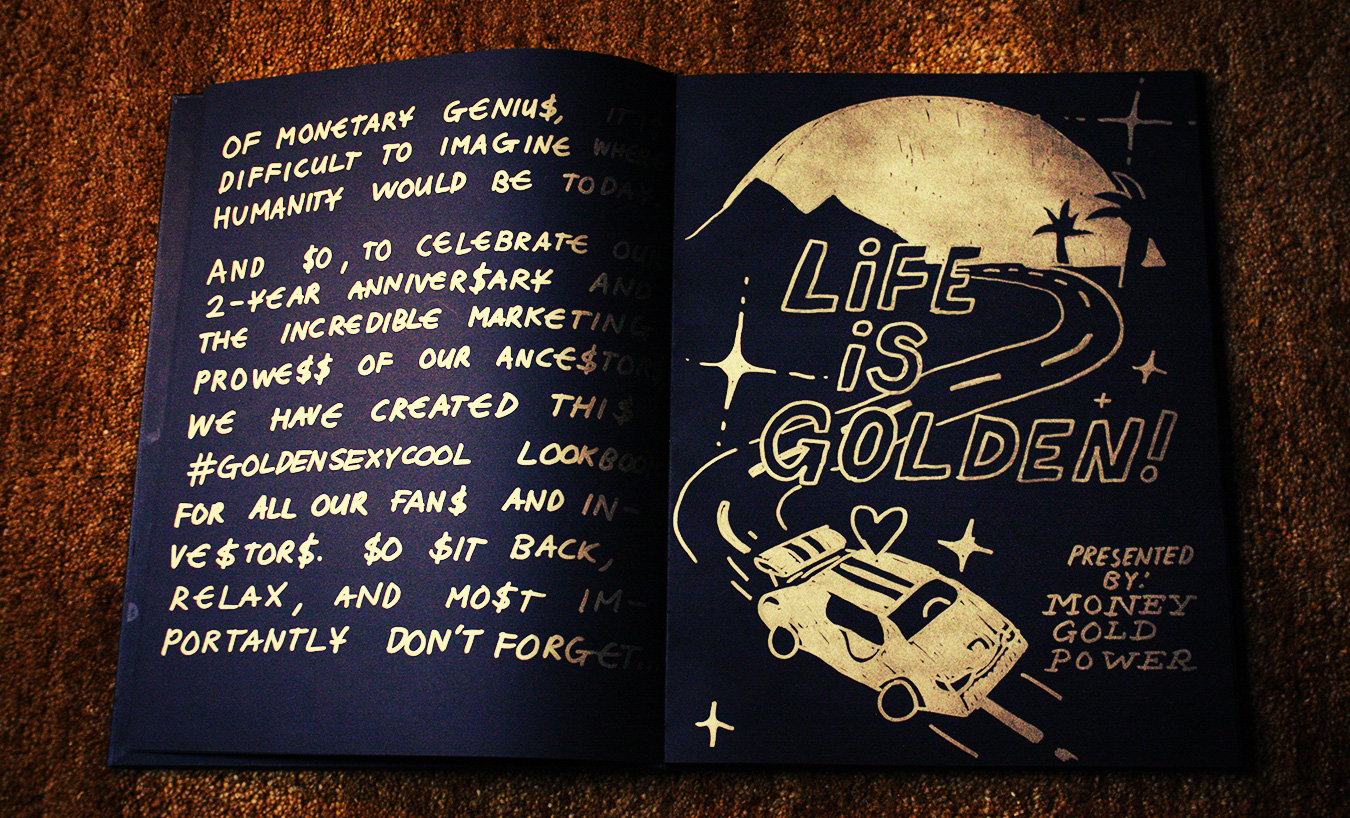 OF MON€TAR¥ G€NIU$, IT I$
DIFFICULT TO IMAGIN€ WH€R€
HUMANIT¥ WOULD B€ TODA¥.
AND $O, TO C€L€BRAT€ OUR
2-¥€AR ANNIV€R$AR¥ AND
TH€ INCR€DIBL€ MARK€TING
PROW€$$ OF OUR ANC€$TOR$
W€ HAV€ CR€AT€D THI$
#GOLDENSEXYCOOL LOOKBOOK
FOR ALL OUR FAN$ AND IN-
V€$TOR$. $O $IT BACK,
R€LAX, AND MO$T IM-
PORTANTL¥ DON'T FORG€T...
LiFE
iS
GOLDEN!
PRESENTED
BY:
MONEY
GOLD
POWER